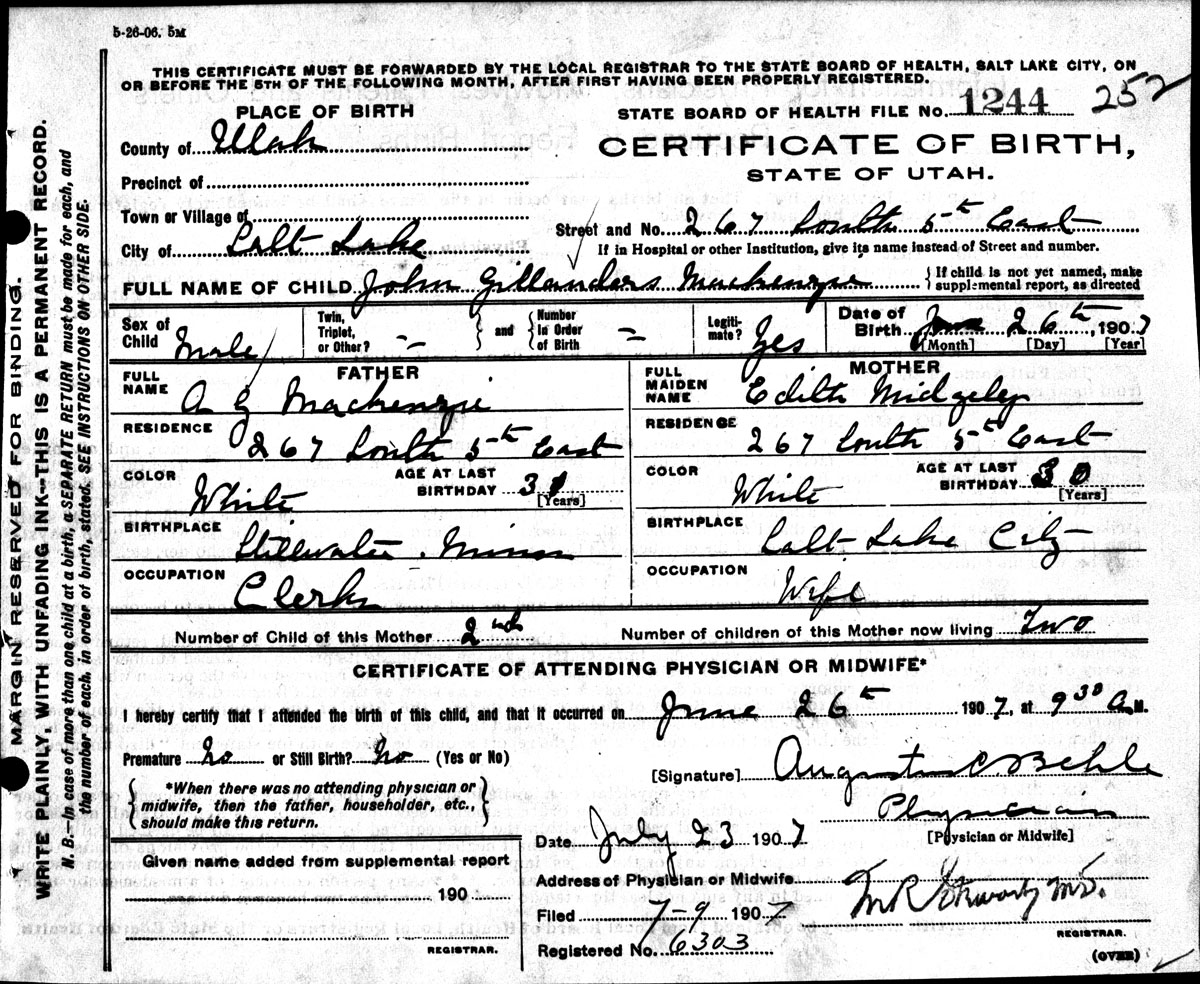 5-26-06. 5M
THIS CERTIFICATE MUST BE FORWARDED BY THE LOCAL REGISTRAR TO THE STATE BOARD OF HEALTH, SALT LAKE CITY, ON
OR BEFORE THE 5TH OF THE FOLLOWING MONTH, AFTER FIRST HAVING BEEN PROPERLY REGISTERED.
PLACE OF BIRTH
STATE BOARD OF HEALTH FILE No. 1244 252
CERTIFICATE OF BIRTH,
STATE OF UTAH.
County of Utah
Precinct of
Town or Village of
Street and No. 267 South 5th East
City of Salt Lake
If in Hospital or other Institution, give its name instead of Street and number.
FULL NAME OF CHILD John Gillanders Mackenzie
{ If child is not yet named, make
supplemental report, as directed
Sex of Child Male
Twin, Triplet, or Other? -- } and { Number In Order of Birth -
Legitimate? Yes
Date of Birth June 26th, 1907
[Month] [Day] [Year]
FATHER
FULL NAME A G Mackenzie
RESIDENCE 267 South 5th East
COLOR White
AGE AT LAST BIRTHDAY 31 [Years]
BIRTHPLACE Stillwater. Minn
OCCUPATION Clerk
MOTHER
FULL MAIDEN NAME Edith Midgeley
RESIDENCE 267 South 5th East
COLOR White
AGE AT LAST BIRTHDAY 30 [Years]
BIRTHPLACE Salt Lake City
OCCUPATION Wife
Number of Child of this Mother 2nd
Number of children of this Mother now living Two
CERTIFICATE OF ATTENDING PHYSICIAN OR MIDWIFE*
I hereby certify that I attended the birth of this child, and that it occurred on June 26th 1907, at 9 30 A. M.
Premature No or Still Birth? No (Yes or No)
[Signature] Augustus C. Behle
{ *When there was no attending physician or
midwife, then the father, householder, etc.,
should make this return. }
Physician
[Physician or Midwife]
Date July 23 1907
Given name added from supplemental report
190
REGISTRAR.
Address of Physician or Midwife
Filed 7-9 1907
M.D.
REGISTRAR.
Registered No. 6303
(OVER)
MARGIN RESERVED FOR BINDING.
WRITE PLAINLY, WITH UNFADING INK—THIS IS A PERMANENT RECORD.
N. B.—In case of more than one child at a birth, a SEPARATE RETURN must be made for each, and
the number of each, in order of birth, stated. SEE INSTRUCTIONS ON OTHER SIDE.